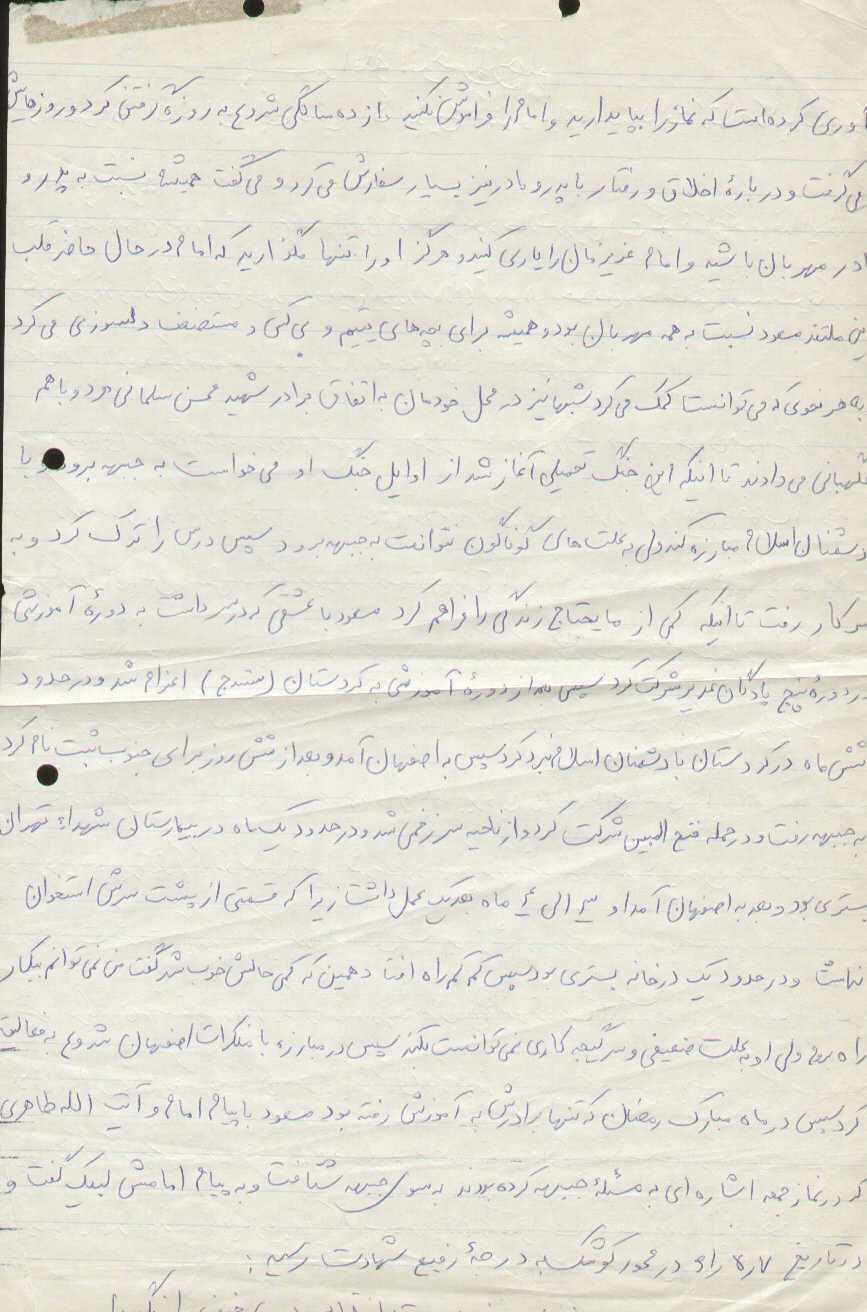 آوری کرده است که نماز را بپا بدارید و امام را فراموش نکنید. از ده سالگی شروع به روزه گرفتن کرد و روزهایش
می گرفت و درباره اخلاق و رفتار با پدر و مادر نیز بسیار سفارش می کرد و می گفت همیشه نسبت به پدر و
ادر مهربان باشید و امام عزیزمان را یاری کنید و هرگز او را تنها نگذارید که امام در حال حاضر قلب
ملتند مسعود نسبت به همه مهربان بود و همیشه برای بچه های یتیم و بی کس و مستضعف دلسوزی می کرد
به هر نحوی که می توانست کمک می کرد شبها نیز در محل خودمان به اتفاق برادر شهید محسن سلمانی هر دو با هم
نگهبانی می دادند تا اینکه این جنگ تحمیلی آغاز شد از اوایل جنگ او می خواست به جبهه برود و با
دشمنان اسلام مبارزه کند ولی به علت های گوناگون نتوانست به جبهه برود سپس درس را ترک کرد و به
سر کار رفت تا اینکه کمی از مایحتاج زندگی را فراهم کرد مسعود با عشقی که در سر داشت به دورۀ آموزشی
در دورۀ پنج پادگان غدیر شرکت کرد سپس بعد از دورۀ آموزشی به کردستان (سنندج) اعزام شد و در حدود
شش ماه در کردستان با دشمنان اسلام نبرد کرد سپس به اصفهان آمد و بعد از شش روز برای جنوب ثبت نام کرد
به جبهه رفت و در حمله فتح المبین شرکت کرد و از ناحیه سر زخمی شد و در حدود یک ماه در بیمارستان شهداء تهران
بستری بود و بعد به اصفهان آمد و ۳ الی ۴ ماه بعد یک عمل داشت زیرا که قسمتی از پشت سرش استخوان
نداشت و در حدود یک در خانه بستری بود سپس کم کم راه افتاد همین که کمی حالش خوب شد گفت من نمی توانم بیکار
راه بروم ولی او به علت ضعیفی و سرگیجه کاری نمی توانست بکند سپس در مبارزه با منکرات اصفهان شروع به فعالیت
کرد سپس در ماه مبارک رمضان که تنها برادرش به آموزش رفته بود مسعود با پیام امام و آیت الله طاهری
که در نماز جمعه اشاره ای به مسئلۀ جبهه کرده بودند به سوی جبهه شتافت و به پیام امامش لبیک گفت و
در تاریخ ۷ر۵ر۶۱ در محور کوشک به درجۀ رفیع شهادت رسید: